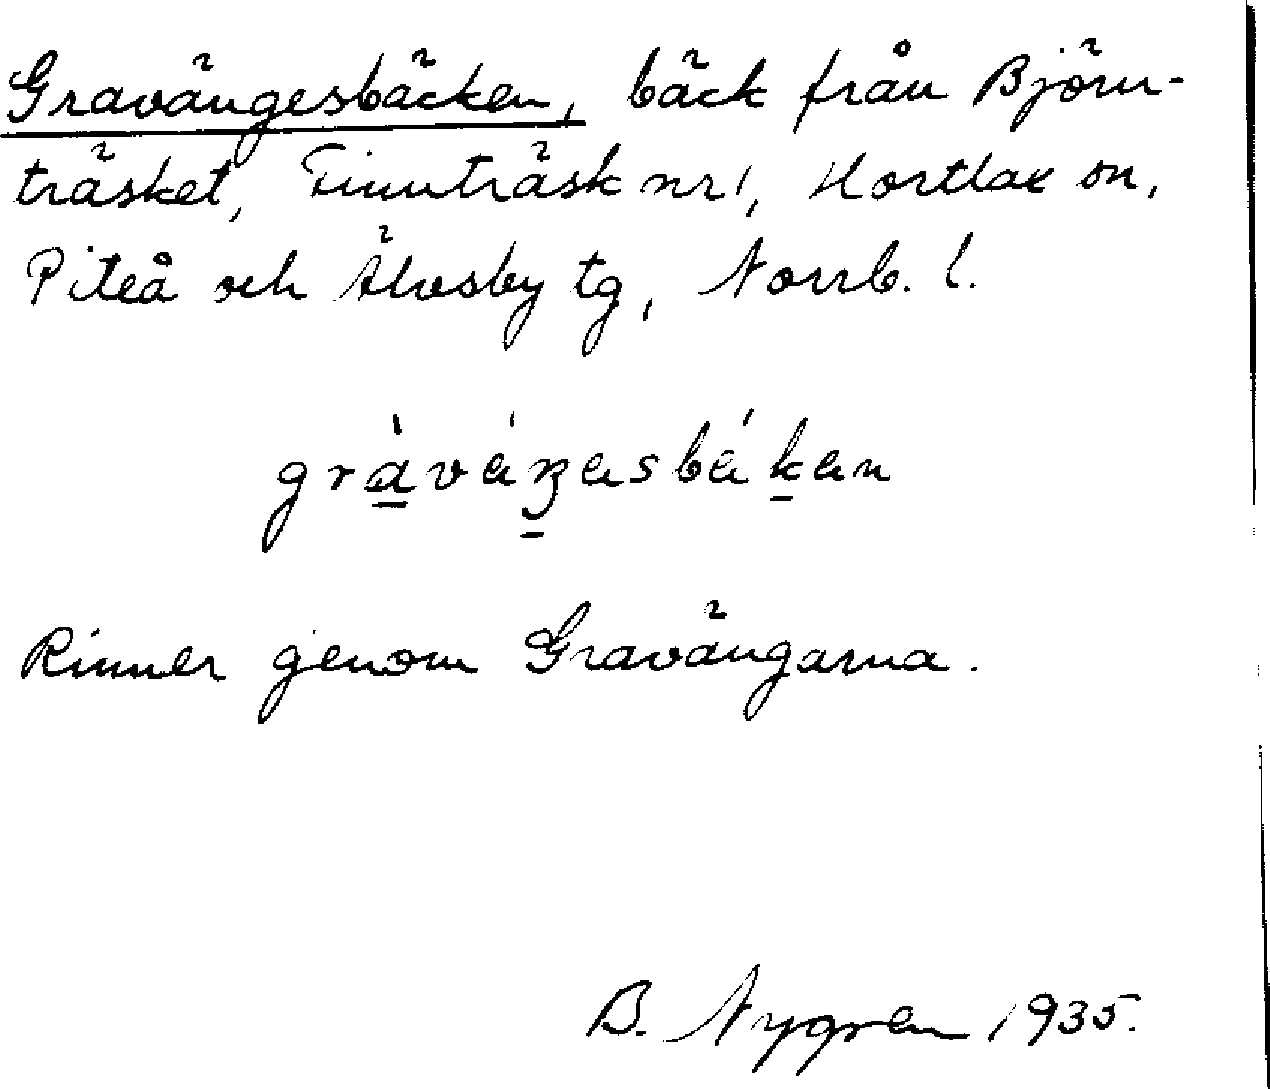 Gravängesbäcken, bäck från Björn-
träsket, Finnträsk nr 1, Hortlax sn,
Piteå och Älvsby tg, Norrb. l.
Rinner genom Gravängarna.
B. Nygren 1935.